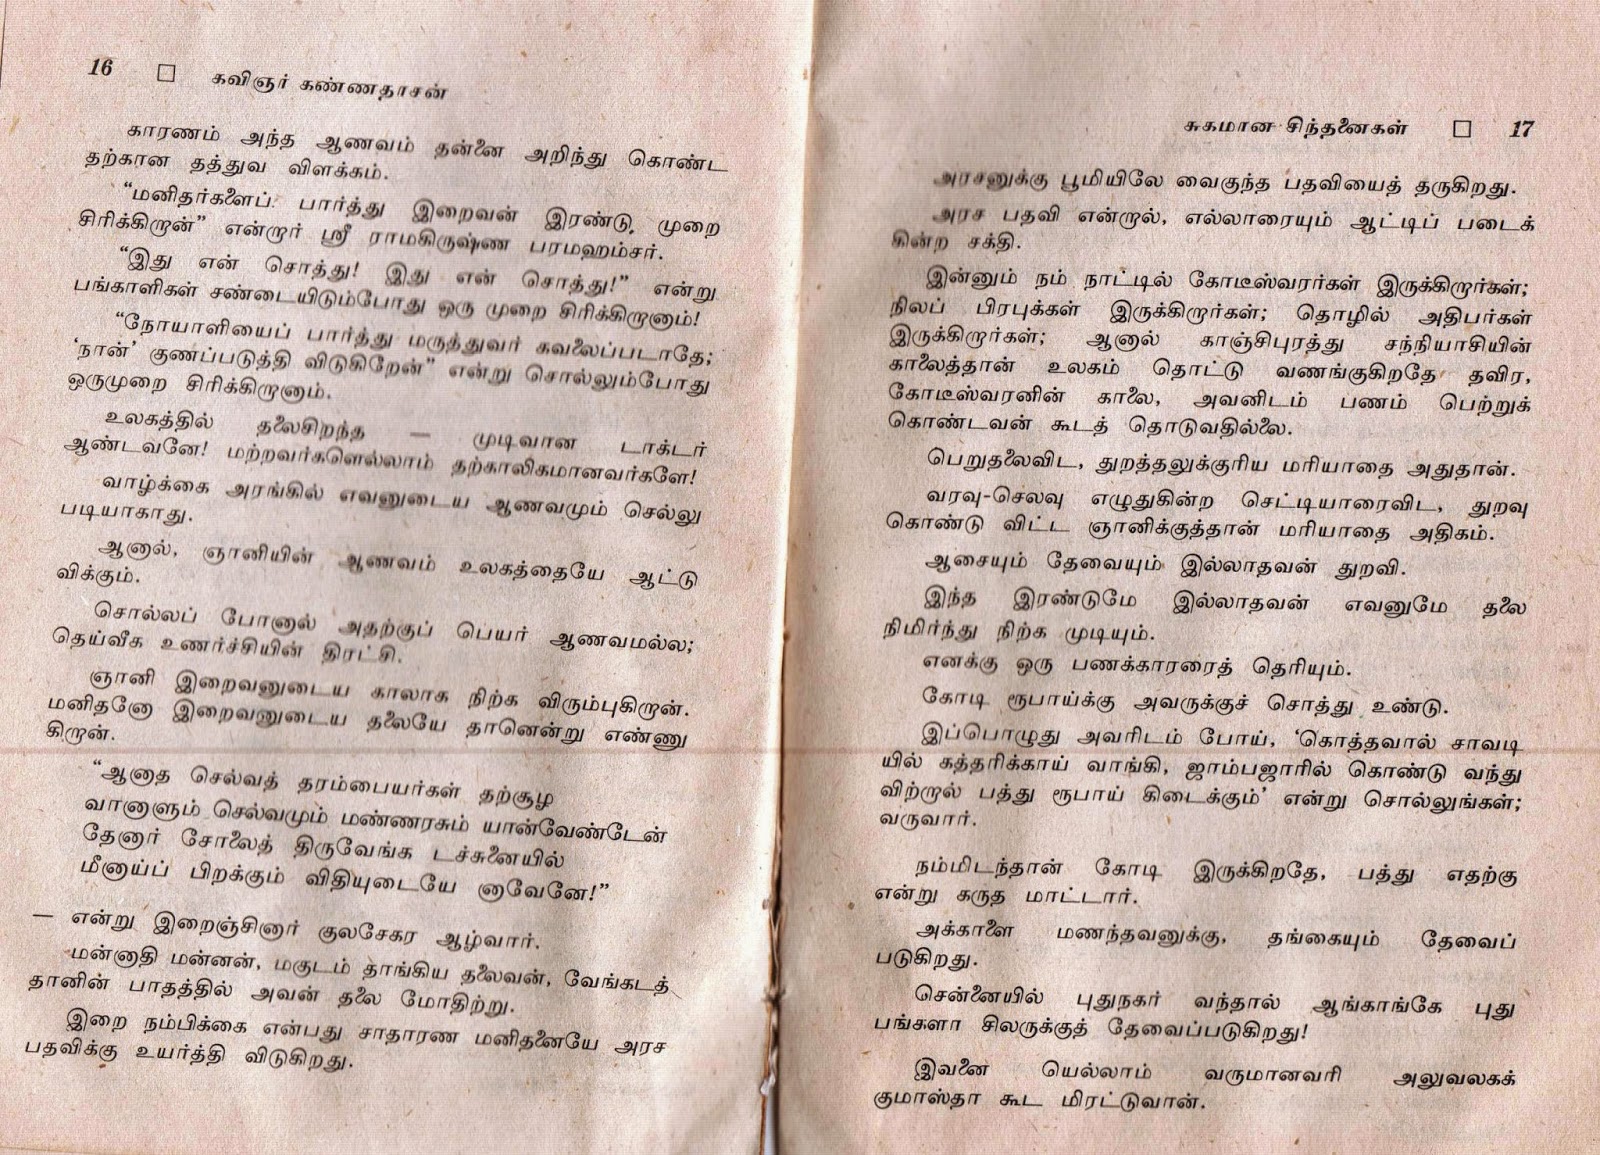 16 □ கவிஞர் கண்ணதாசன்
காரணம் அந்த ஆணவம் தன்னை அறிந்து கொண்ட
தற்கான தத்துவ விளக்கம்.
“மனிதர்களைப் பார்த்து இறைவன் இரண்டு முறை
சிரிக்கிறான்” என்றார் ஸ்ரீ ராமகிருஷ்ண பரமஹம்சர்.
“இது என் சொத்து! இது என் சொத்து!” என்று
பங்காளிகள் சண்டையிடும்போது ஒரு முறை சிரிக்கிறானாம்!
“நோயாளியைப் பார்த்து மருத்துவர் கவலைப்படாதே;
‘நான்’ குணப்படுத்தி விடுகிறேன்” என்று சொல்லும்போது
ஒருமுறை சிரிக்கிறானாம்.
உலகத்தில் தலைசிறந்த — முடிவான டாக்டர்
ஆண்டவனே! மற்றவர்களெல்லாம் தற்காலிகமானவர்களே!
வாழ்க்கை அரங்கில் எவனுடைய ஆணவமும் செல்லு
படியாகாது.
ஆனால், ஞானியின் ஆணவம் உலகத்தையே ஆட்டு
விக்கும்.
சொல்லப் போனால் அதற்குப் பெயர் ஆணவமல்ல;
தெய்வீக உணர்ச்சியின் திரட்சி.
ஞானி இறைவனுடைய காலாக நிற்க விரும்புகிறான்.
மனிதனோ இறைவனுடைய தலையே தானென்று எண்ணு
கிறான்.
“ஆனாத செல்வத் தரம்பையர்கள் தற்சூழ
வானாளும் செல்வமும் மண்ணரசும் யான்வேண்டேன்
தேனார் சோலைத் திருவேங்க டச்சுனையில்
மீனாய்ப் பிறக்கும் விதியுடையே னாவேனே!”
— என்று இறைஞ்சினார் குலசேகர ஆழ்வார்.
மன்னாதி மன்னன், மகுடம் தாங்கிய தலைவன், வேங்கடத்
தானின் பாதத்தில் அவன் தலை மோதிற்று.
இறை நம்பிக்கை என்பது சாதாரண மனிதனையே அரச
பதவிக்கு உயர்த்தி விடுகிறது.
சுகமான சிந்தனைகள் □ 17
அரசனுக்கு பூமியிலே வைகுந்த பதவியைத் தருகிறது.
அரச பதவி என்றால், எல்லாரையும் ஆட்டிப் படைக்
கின்ற சக்தி.
இன்னும் நம் நாட்டில் கோடீஸ்வரர்கள் இருக்கிறார்கள்;
நிலப் பிரபுக்கள் இருக்கிறார்கள்; தொழில் அதிபர்கள்
இருக்கிறார்கள்; ஆனால் காஞ்சிபுரத்து சந்நியாசியின்
காலைத்தான் உலகம் தொட்டு வணங்குகிறதே தவிர,
கோடீஸ்வரனின் காலை, அவனிடம் பணம் பெற்றுக்
கொண்டவன் கூடத் தொடுவதில்லை.
பெறுதலைவிட, துறத்தலுக்குரிய மரியாதை அதுதான்.
வரவு-செலவு எழுதுகின்ற செட்டியாரைவிட, துறவு
கொண்டு விட்ட ஞானிக்குத்தான் மரியாதை அதிகம்.
ஆசையும் தேவையும் இல்லாதவன் துறவி.
இந்த இரண்டுமே இல்லாதவன் எவனுமே தலை
நிமிர்ந்து நிற்க முடியும்.
எனக்கு ஒரு பணக்காரரைத் தெரியும்.
கோடி ரூபாய்க்கு அவருக்குச் சொத்து உண்டு.
இப்பொழுது அவரிடம் போய், ‘கொத்தவால் சாவடி
யில் கத்தரிக்காய் வாங்கி, ஜாம்பஜாரில் கொண்டு வந்து
விற்றால் பத்து ரூபாய் கிடைக்கும்’ என்று சொல்லுங்கள்;
வருவார்.
நம்மிடந்தான் கோடி இருக்கிறதே, பத்து எதற்கு
என்று கருத மாட்டார்.
அக்காளை மணந்தவனுக்கு, தங்கையும் தேவைப்
படுகிறது.
சென்னையில் புதுநகர் வந்தால் ஆங்காங்கே புது
பங்களா சிலருக்குத் தேவைப்படுகிறது!
இவனை யெல்லாம் வருமானவரி அலுவலகக்
குமாஸ்தா கூட மிரட்டுவான்.